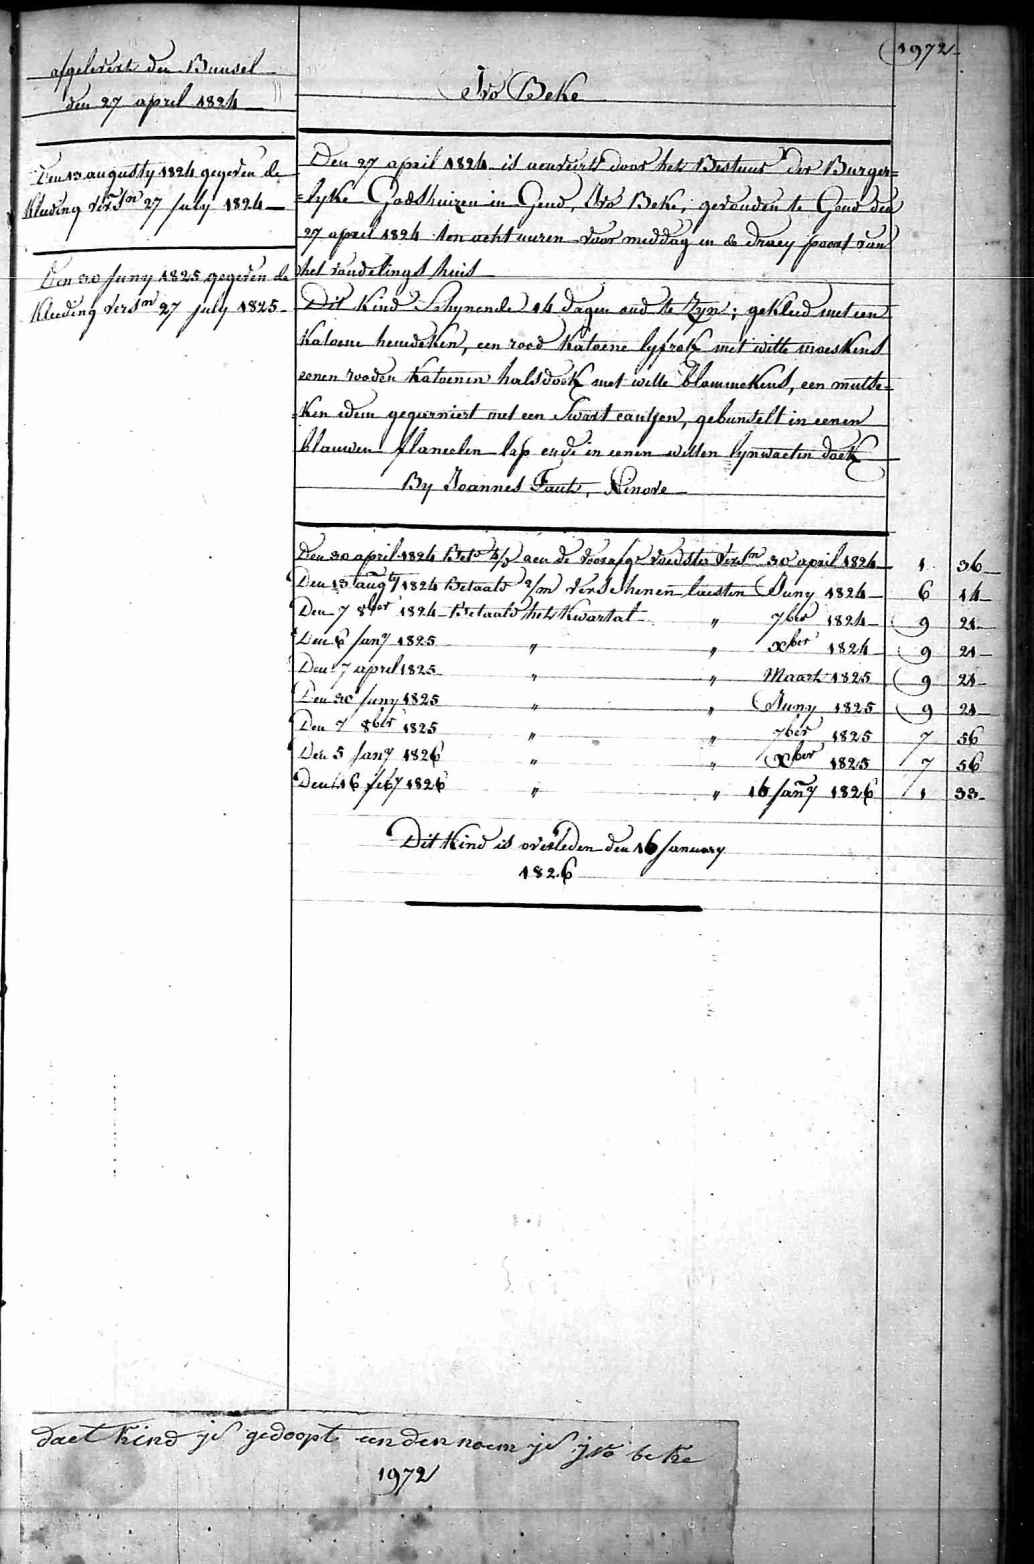 1972
afgelevert den Bunsel
den 27 april 1824
Ivo Beke
Den 13 augusty 1824 gegeven de
kleeding versn 27 july 1824
Den 30 juny 1825 gegeven de
kleeding versn 27 july 1825
Den 27 april 1824 is aenveirt door het Bestuur der Burger=
=lyke Godshuizen in Gend, Ivo Beke, gevonden te Gend den
27 april 1824 ten acht uuren voor middag in de draey poort van
het vondelings huis
Dit kind schynende 14 dagen oud te zyn; gekleed met een
katoene hemdeken, een rood katoene lyfrok met witte moeskens
eenen rooden katoenen halsdoek met witte blommekens, een mutse=
=ken idem gegarniert met een swart cantjen, gebunselt in eenen
blauwen flanelen lap ende in eenen witten lynwaeten doek
By Joannes Fauts, Ninove
Den 30 april 1824 Bet. 4/3 aen de voorafge voedster versn 30 april 1824 1 36
Den 13 augty 1824 Betaald 2/m verschenen laesten Juny 1824 6 14
Den 7 8ber 1824 Betaald het kwartal " 7ber 1824 9 21
Den 6 jany 1825 " " xber 1824 9 21
Den 7 april 1825 " " Maart 1825 9 21
Den 30 juny 1825 " " Juny 1825 9 21
Den 7 8ber 1825 " " 7ber 1825 7 56
Den 5 jany 1826 " " xber 1825 7 56
Den 16 feby 1826 " " 16 jany 1826 1 33
Dit kind is overleden den 16 january
1826
daet kind js gedoopt en den noem js jvo beke
1972